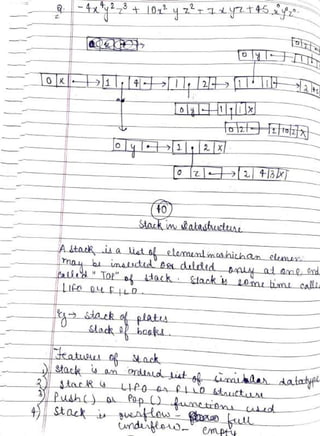 Q. -4x⁴y²z³ + 10x² y z² - 7 xyz + 45
0 y
0 x 1 4 1 2 1 1 2
0 y 1 1 X
0 z 1 10 2 X
0 y 1 2 X
0 z 2 4 3 X
40
Stack in Datastructure
A stack is a list of element in which an elemen
may be inserted or deleted only at one end
called "TOP" of stack. Stack is some time calle
LIFO or FILO.
Eg → stack of plates
stack of books.
Features of stack
1) Stack is an ordered list of similar datatype
2) Stack is LIFO or FILO structure
3) Push() or Pop() functions used
4) Stack is overflow - full
underflow - empty